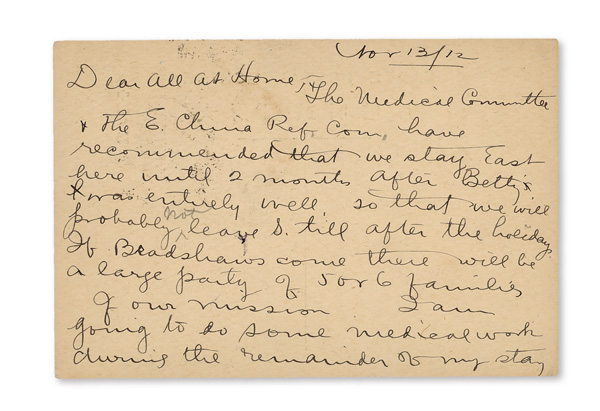 Nov 13/12
Dear All at Home, The Medical Committee
& the E. China Ref. Com. have
recommended that we stay East
here until 2 months after Betty
was entirely well so that we will
probably not leave S. till after the holidays
If Bradshaws come there will be
a large party of 5 or 6 families
of our mission I am
going to do some medical work
during the remainder of my stay